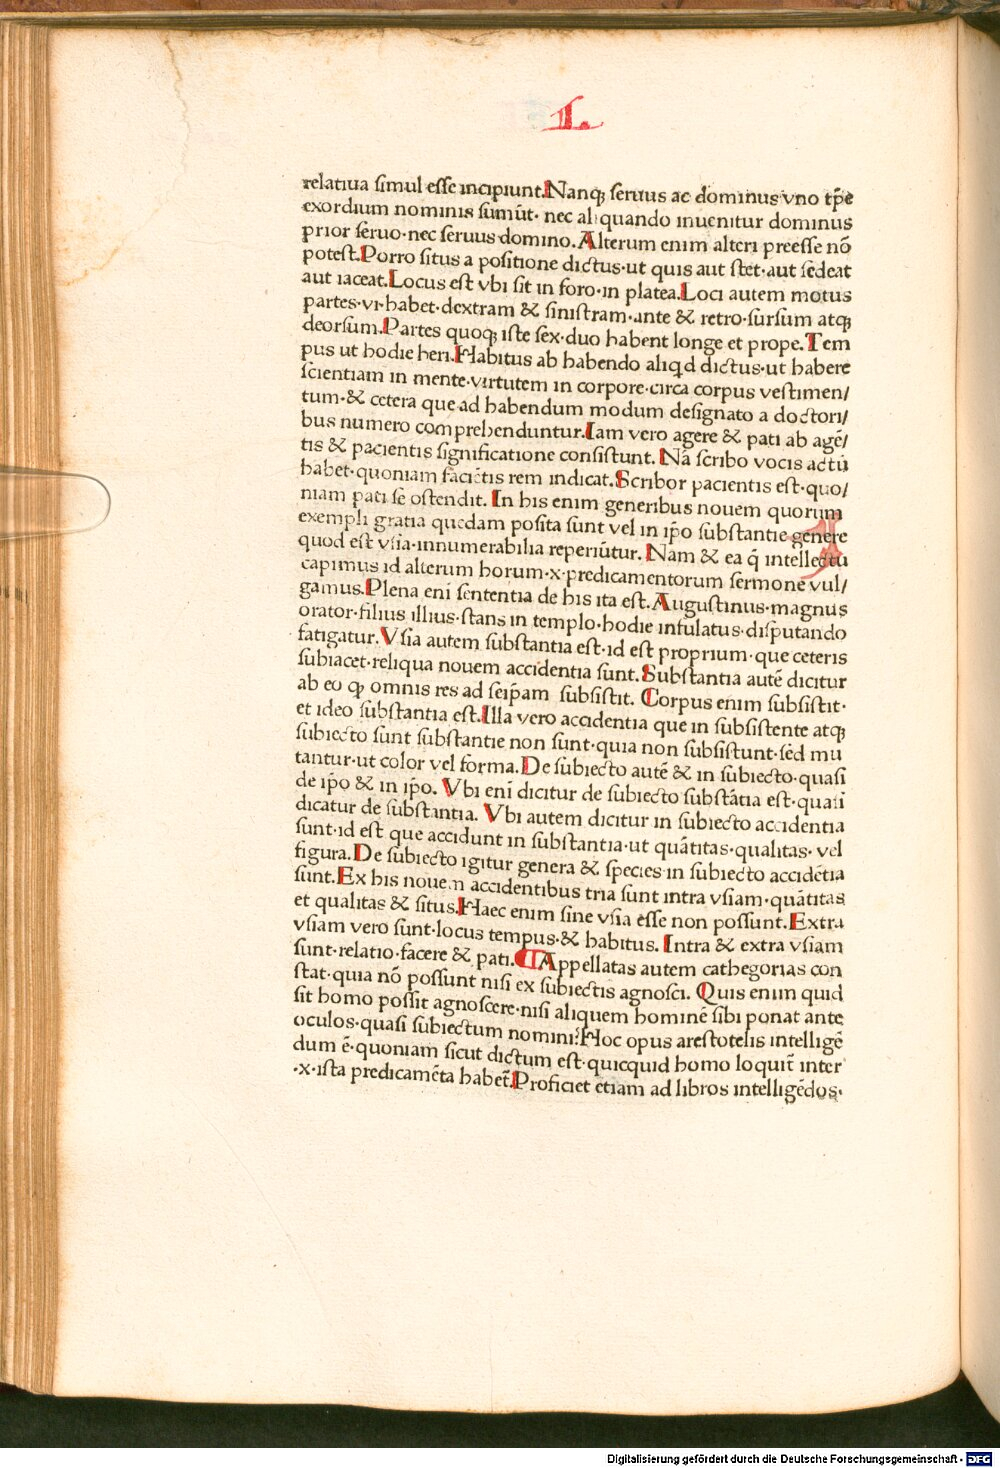 L
relatiua simul esse incipiunt. Nanqꝫ seruus ac dominus vno tp̄e
exordium nominis sumūt· nec aliquando inuenitur dominus
prior seruo·nec seruus domino. Alterum enim alteri preesse nō
potest. Porro situs a positione dictus·ut quis aut stet·aut sedeat
aut iaceat. Locus est vbi sit in foro·in platea. Loci autem motus
partes·vi·habet·dextram & sinistram·ante & retro·sursum atqꝫ
deorsum. Partes quoqꝫ iste sex·duo habent longe et prope. Tem
pus ut hodie heri. Habitus ab habendo aliqd dictus·ut habere
scientiam in mente·virtutem in corpore·circa corpus vestimen/
tum·& cetera que ad habendum modum designato a doctori/
bus numero comprehenduntur. Iam vero agere & pati ab agē/
tis & pacientis significatione consistunt. Nā scribo vocis actū
habet·quoniam faciētis rem indicat. Scribor pacientis est·quo/
niam pati se ostendit. In his enim generibus nouem quorum
exempli gratia quedam posita sunt vel in ip̄o substantie genere
quod est vsia·innumerabilia reperiūtur. Nam & ea q̄ intellectu
capimus id alterum horum·x·predicamentorum sermone vul/
gamus. Plena eni sententia de his ita est. Augustinus·magnus
orator·filius illius·stans in templo·hodie infulatus·disputando
fatigatur. Vsia autem substantia est·id est proprium·que ceteris
subiacet·reliqua nouem accidentia sunt. Substantia autē dicitur
ab eo qꝫ omnis res ad seip̄am subsistit. Corpus enim subsistit·
et ideo substantia est. Illa vero accidentia que in subsistente atqꝫ
subiecto sunt substantie non sunt·quia non subsistunt·sed mu
tantur·ut color vel forma. De subiecto autē & in subiecto·quasi
de ip̄o & in ip̄o. Vbi eni dicitur de subiecto substātia est·quasi
dicatur de substantia. Vbi autem dicitur in subiecto accidentia
sunt·id est que accidunt in substantia·ut quātitas·qualitas· vel
figura. De subiecto igitur genera & species·in subiecto accidētia
sunt. Ex his nouem accidentibus tria sunt intra vsiam·quātitas
et qualitas & situs. Haec enim sine vsia esse non possunt. Extra
vsiam vero sunt·locus tempus·& habitus. Intra & extra vsiam
sunt·relatio·facere & pati. ¶ Appellatas autem cathegorias con
stat·quia nō possunt nisi ex subiectis agnosci. Quis enim quid
sit homo possit agnoscere·nisi aliquem hominē sibi ponat ante
oculos·quasi subiectum nomini? Hoc opus arestotelis intelligē
dum ē·quoniam sicut dictum est·quicquid homo loquit̄ inter
·x·ista predicamēta habet̄. Proficiet etiam ad libros intelligēdos·
Digitalisierung gefördert durch die Deutsche Forschungsgemeinschaft - DFG